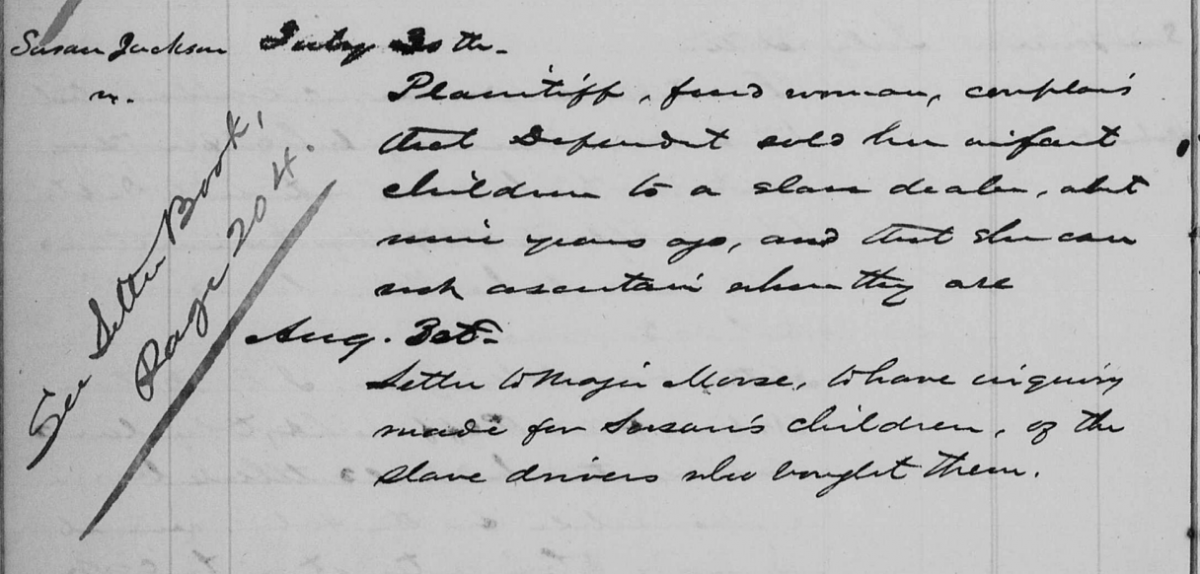 Susan Jackson July 30th.
v.
Plaintiff, freed woman, complains
that Defendant sold her infant
children to a slave dealer, abt
nine years ago, and that she can
not ascertain where they are
Aug.
Letter to Major Morse, to have inquiry
made for Susan's children, of the
slave drivers who bought them.
See Letter Book,
Page 204.